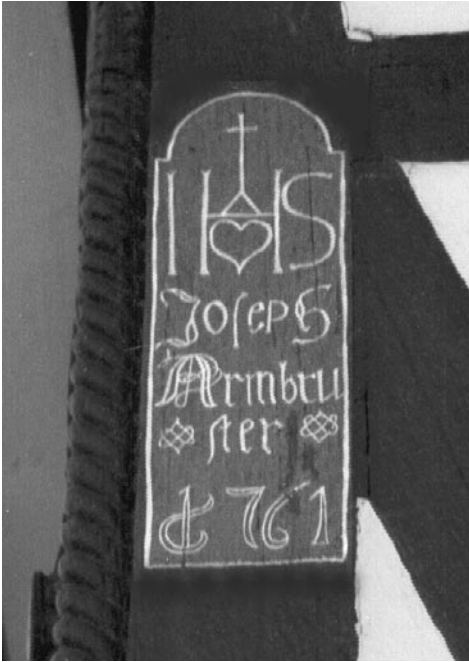 IHS
Joſeph
Armbru
ſter
1761